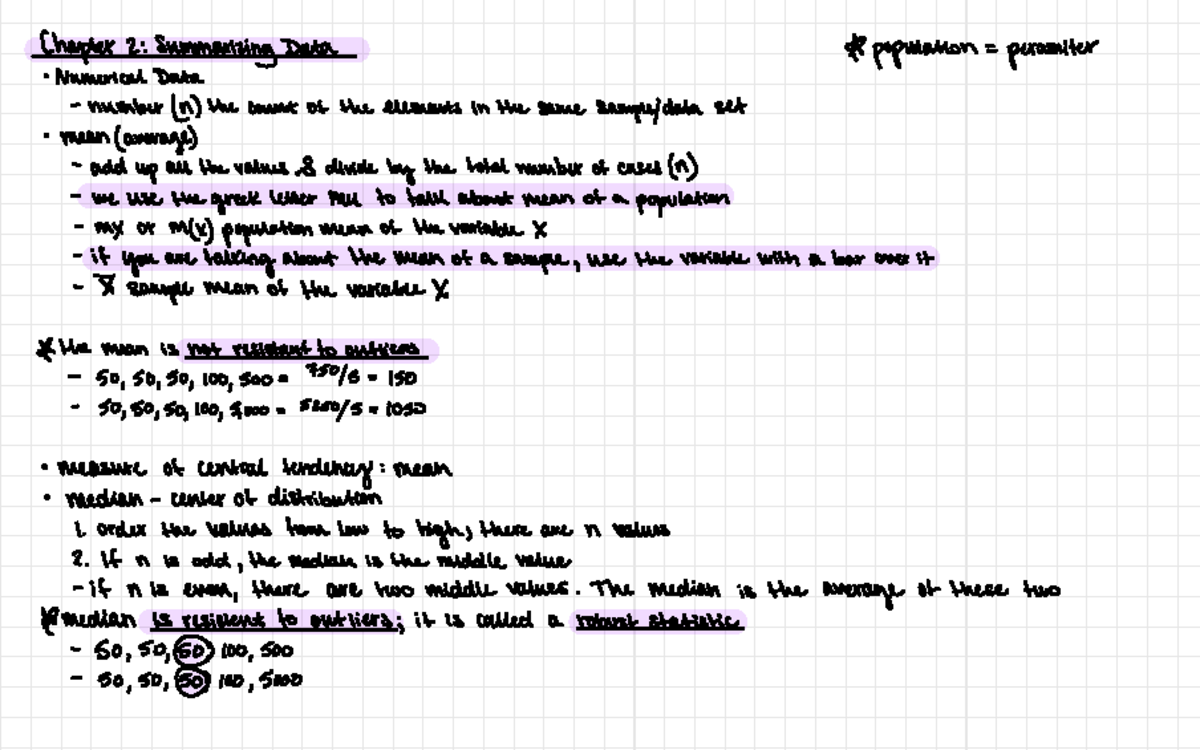 Chapter 2: Summarizing Data
* population = peramiter
• Numerical Data
- number (n) the count of the elements in the same sample/data set
• mean (average)
- add up all the values & divide by the total number of cases (n)
- we use the greek letter mu to talk about mean of a population
- mx or m(x) population mean of the variable X
- if you are talking about the mean of a sample, use the variable with a bar over it
- X̄ sample mean of the variable X
* the mean is not resistant to outliers
- 50, 50, 50, 100, 500 = 750/5 = 150
- 50, 50, 50, 100, 5000 = 5250/5 = 1050
• measure of central tendency: mean
• median - center of distribution
1. order the values from low to high; there are n values
2. If n is odd, the median is the middle value
- if n is even, there are two middle values. The median is the average of these two
* median is resistent to outliers; it is called a robust statistic
- 50, 50, 50, 100, 500
- 50, 50, 50, 100, 5000